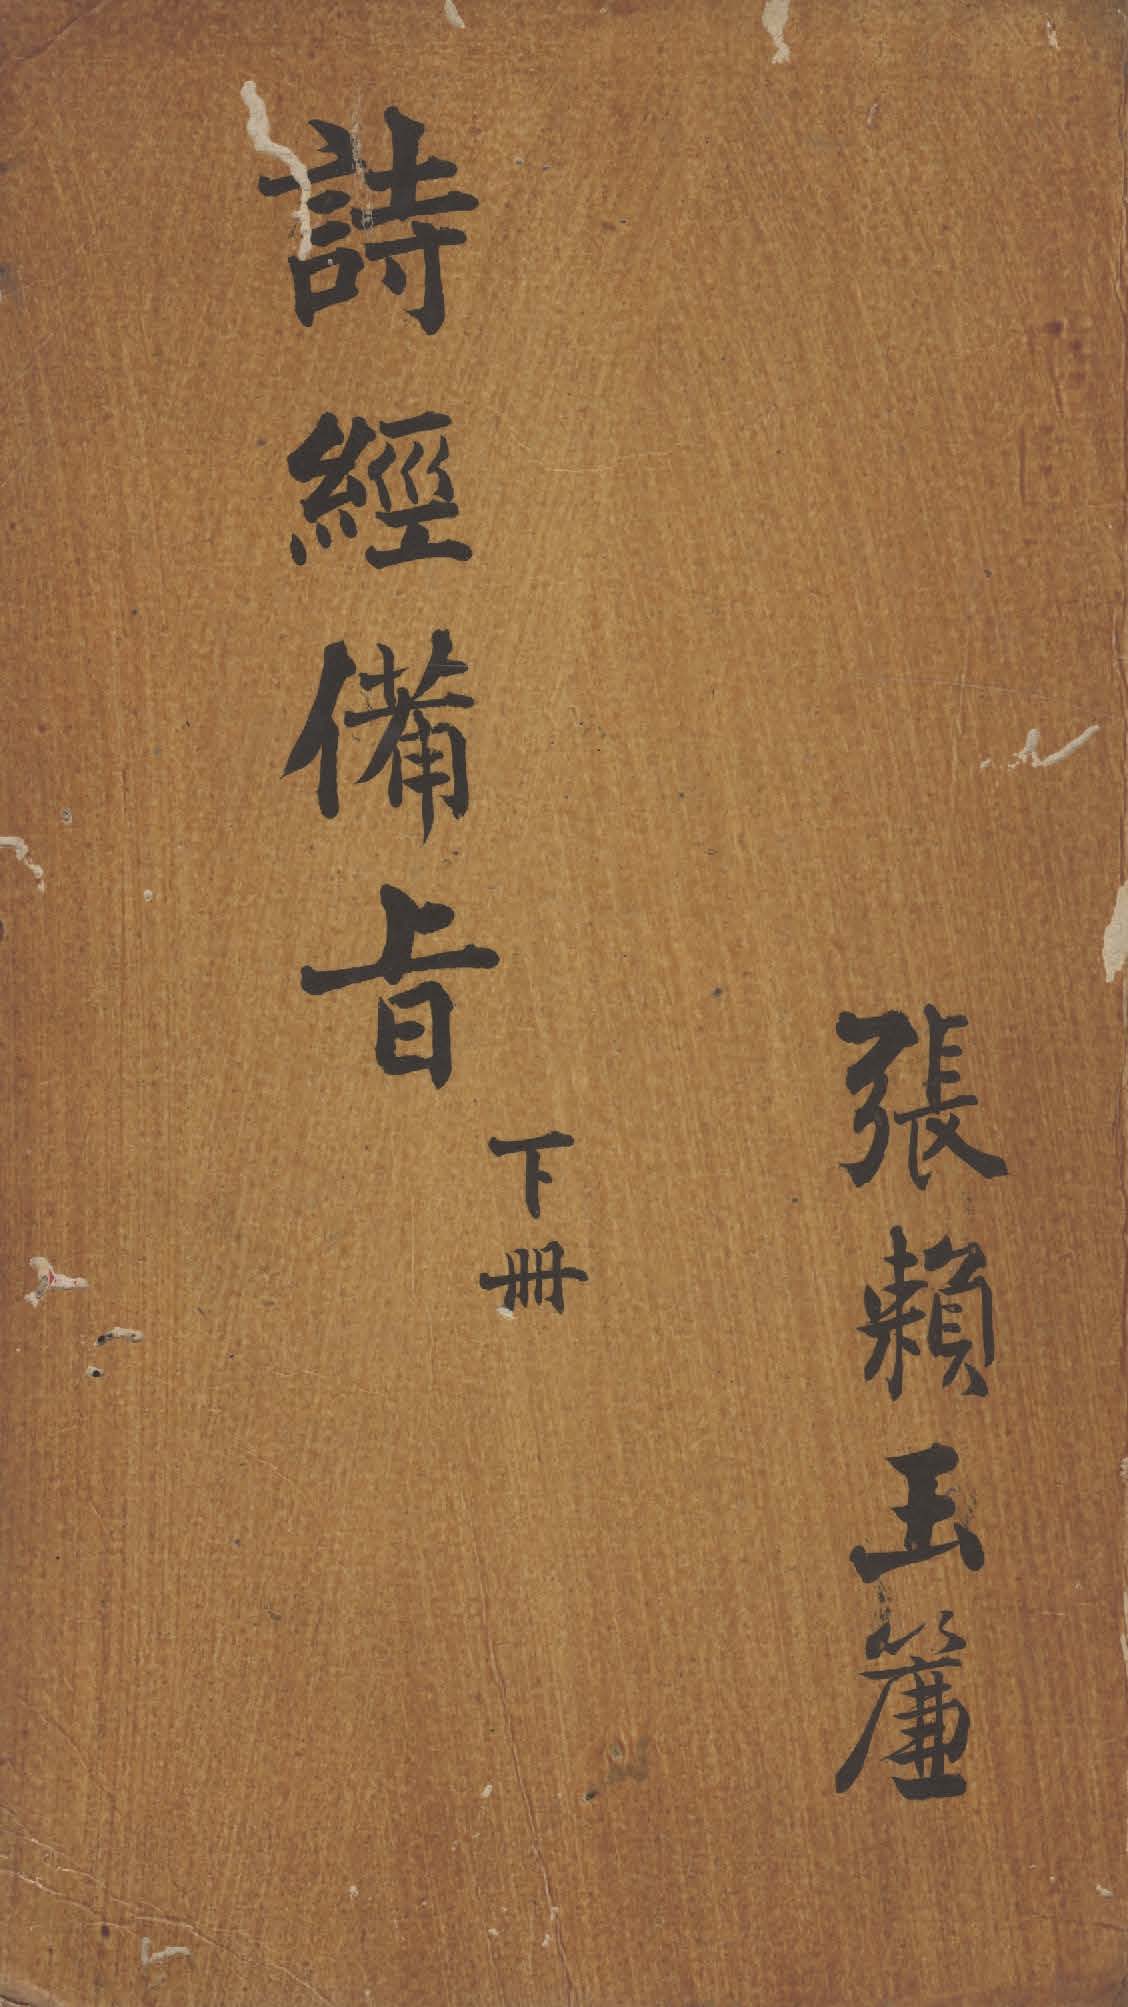 張賴玉簾
詩經備旨
下冊